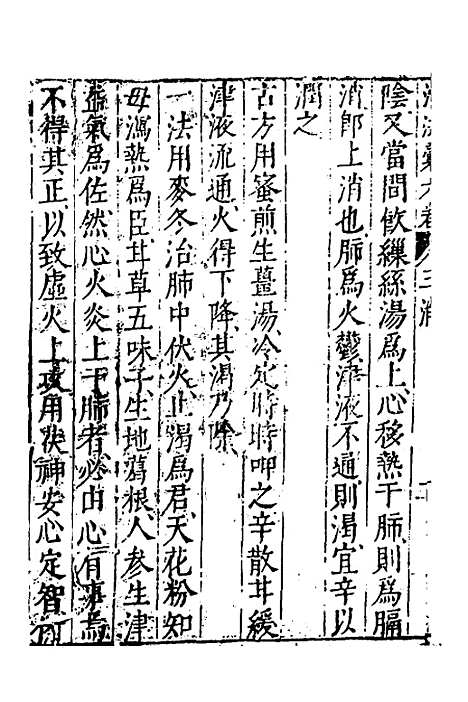 陰又當間飲繅絲湯爲上心移熱于肺則爲膈
消郎上消也肺爲火鬱津液不通則渴宜辛以
潤之
古方用蜜煎生薑湯冷定時時呷之辛散甘緩
津液流通火得下降其渴乃除
一法用麥冬治肺中伏火止渴爲君天花粉知
母瀉熱爲臣甘草五味子生地葛根人参生津
益氣爲佐然心火炎上于肺者必由心有事焉
不得其正以致虛火上攻用茯神安心定智